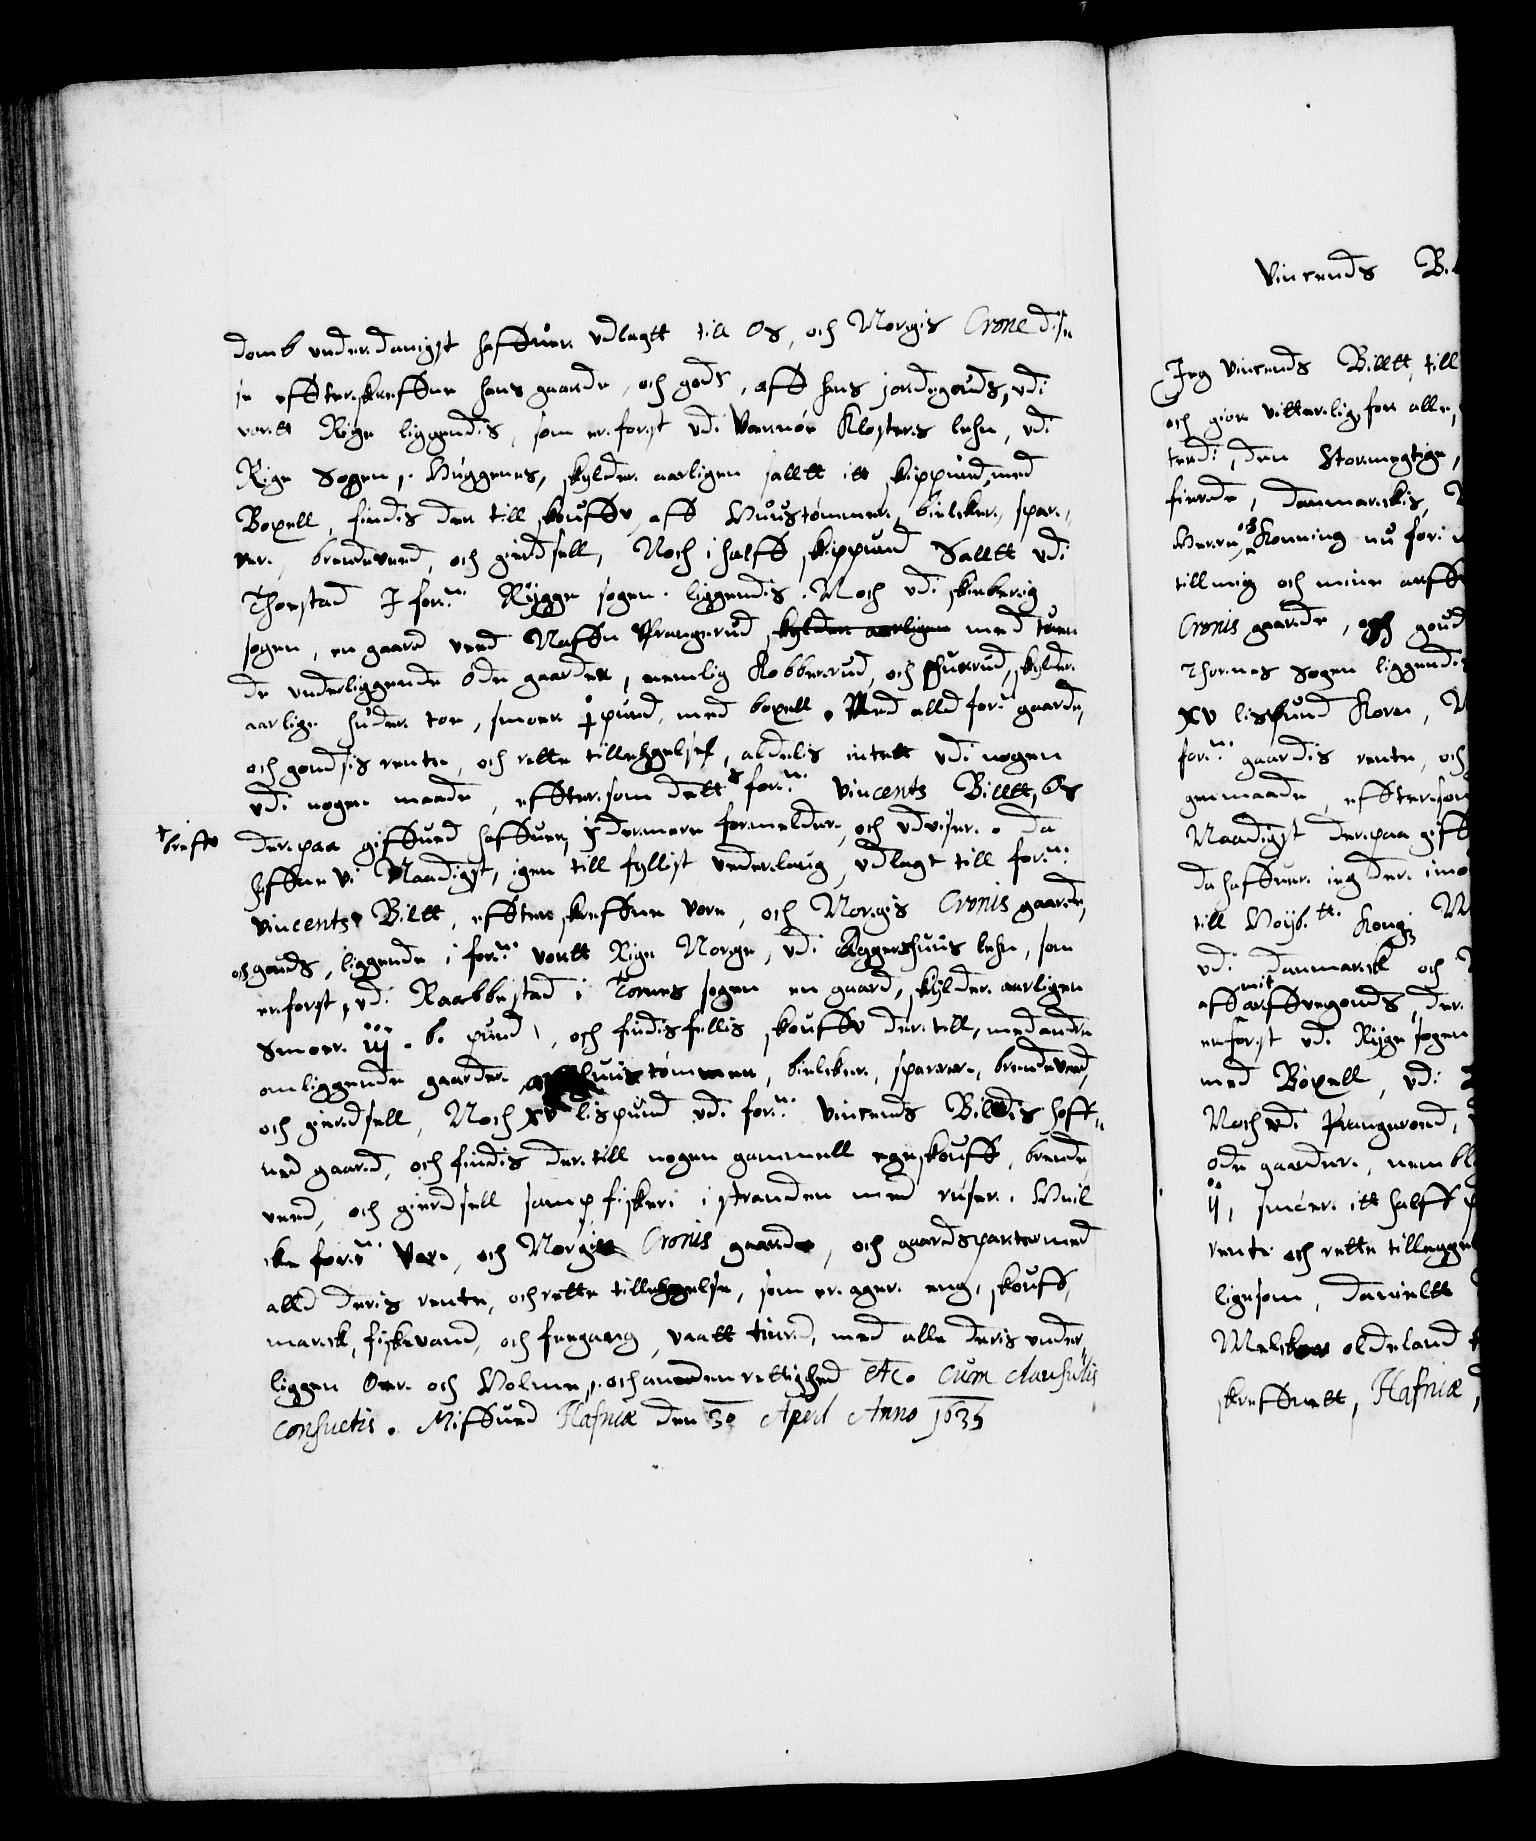 domb underdanigst haffuer udlagtt till Os, och Norgis Crone dis-
se effterskreffne hans gaarde, och gods, aff hans jordegouds, udi
vortt Rige liggendis, som er først udi Varnøe Klosters lehn, udi
Rige Sogen, Huggenes, skylder aarligen salltt itt skippund, med
Boxell, findis der till skouffv aff Huustømmer, bielcker, spar-
rer, brendeved, och gierdsell, Noch i halff skippund Salltt udi
Thorstad I for:ne Rygge sogen liggendis. Noch udi skieberig
sogen, en gaard ved Naffn Prangerud skylder aarligen med tuen
de underliggende øde gaarder, nemlig Robberrud, och Huerrud, skylder
aarlige huder toe, smoer j pund, med boxell. Med alld for:ne gaarde,
och goudsis rente, och rette tilleggelse, aldelis intett udi nogen
udi nogen maade, efftersom dett for:ne Vincents Billtt, Os
† breffv derpaa giffued haffuer, ydermere formelder, och udviser. Da
haffue Vi Naadigst, igen till fyllist vederlaug, udlagt till for:ne
Vincents Biltt, effterskreffne Vore, och Norgis Cronis gaarde,
och gouds, liggende i for:ne vortt Rige Norge, udi Aggershuus lehn, som
er først, udi Raabbestad i Tornes sogen en gaard, skylder aarligen
Smoer iij b. pund, och findis fellis skouffv der till, med andre
omliggende gaarder aff huustømmer, bielcker, sparrer, brendeved,
och gierdsell, Noch xv lispund udi for:ne Vincends Billdis hoff-
ued gaard, och findis der till nogen gammell egeskouff, brende
ved, och gierdsell samp fiskeri i stranden med ruser. Huil
cke for:ne Vore, och Norgis Cronis gaarde, och gaardsparter med
alld deris rente, och rette tilleggelse, som er ager, eng, skouff,
marck, fiskevand, och feegang, vaatt tiurd, med alle deris under
liggen Øer och Holme, och anden rettighed etc. cum clausulis
consuetis. Giffued Hafniæ den 30 Aperl Anno 1635
Vincends B.
Jeg Vincends Billtt, till
och giør vitterlig for alle,
tendi, den Stormegtige,
fierde, Danmarckis,
Herre, och Konning nu fori
till mig och mine arff
Cronis gaarde, och goud
Thornes Sogen liggendi
xv lispund Korn,
for:ne gaardis rente, och
gen maade, effterson
Naadigst derpaa giff
da haffuer ieg der imo
till Høyb:tt Kong:
udi Danmarck och
aff mit arffvegouds, der
er først udi Rygge sogen
med Boxell, udi
Noch udi Prangerond,
øde gaarder, nembl
ij, smoer itt halff p
rente och rette tillegge
ligesom, Danieltt
Melcker oldeland
skreffuett, Hafniæ,